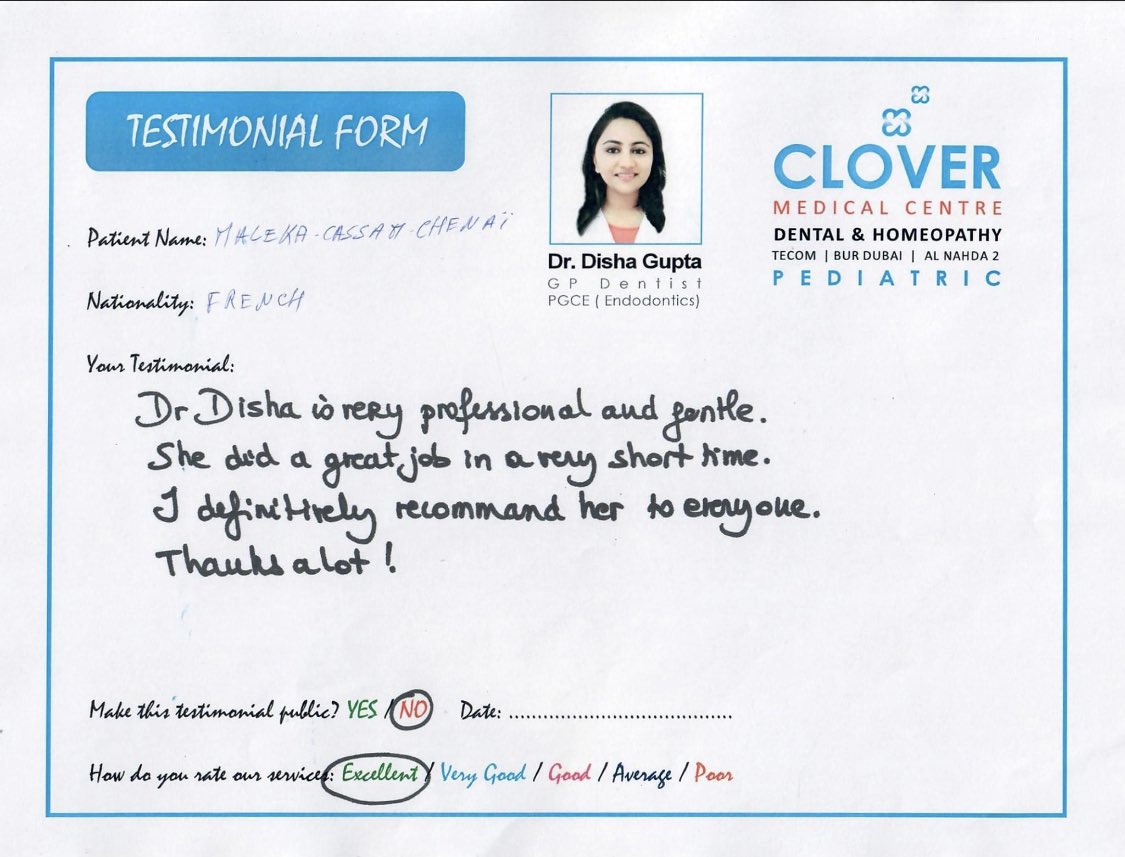 TESTIMONIAL FORM
CLOVER
MEDICAL CENTRE
DENTAL & HOMEOPATHY
TECOM | BUR DUBAI | AL NAHDA 2
PEDIATRIC
Dr. Disha Gupta
GP Dentist
PGCE ( Endodontics)
Patient Name: MALEKA-CASSAM-CHENAÏ
Nationality: FRENCH
Your Testimonial:
Dr Disha is very professional and gentle.
She did a great job in a very short time.
I definitively recommand her to everyone.
Thanks a lot !
Make this testimonial public? YES / NO Date: .......................................
How do you rate our services: Excellent / Very Good / Good / Average / Poor